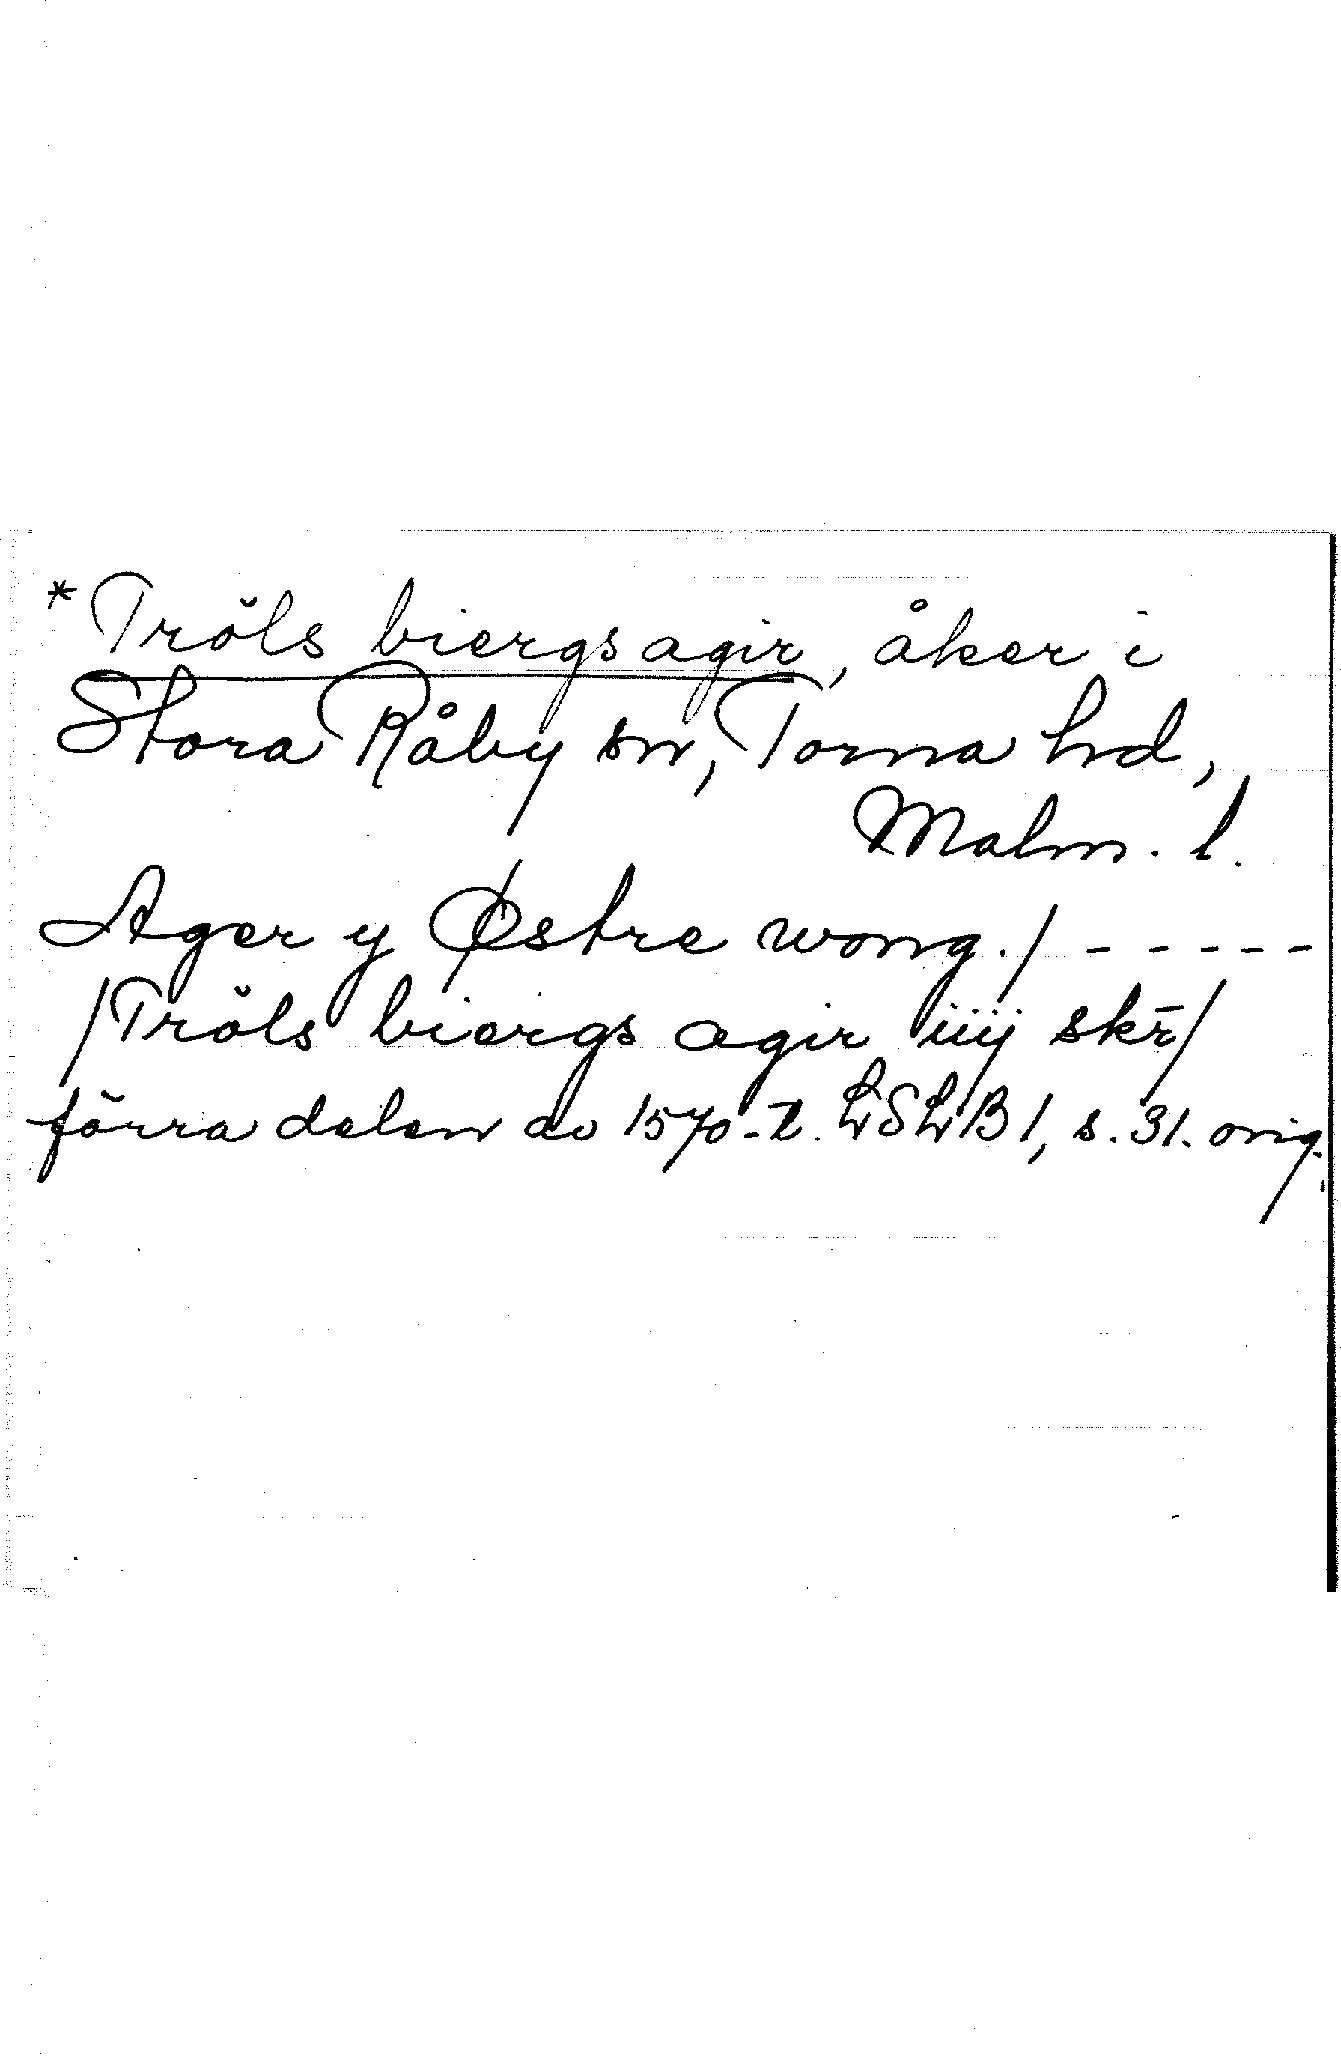 *Trŏls biergs agir, åker i
Stora Råby sn, Torna hd,
Malm. l.
Ager y Østre wong./ - - - - -
/Trŏls biergs agir iiij skr̄/
förra delen av 1570-t. LSLB 1, s. 31. orig.